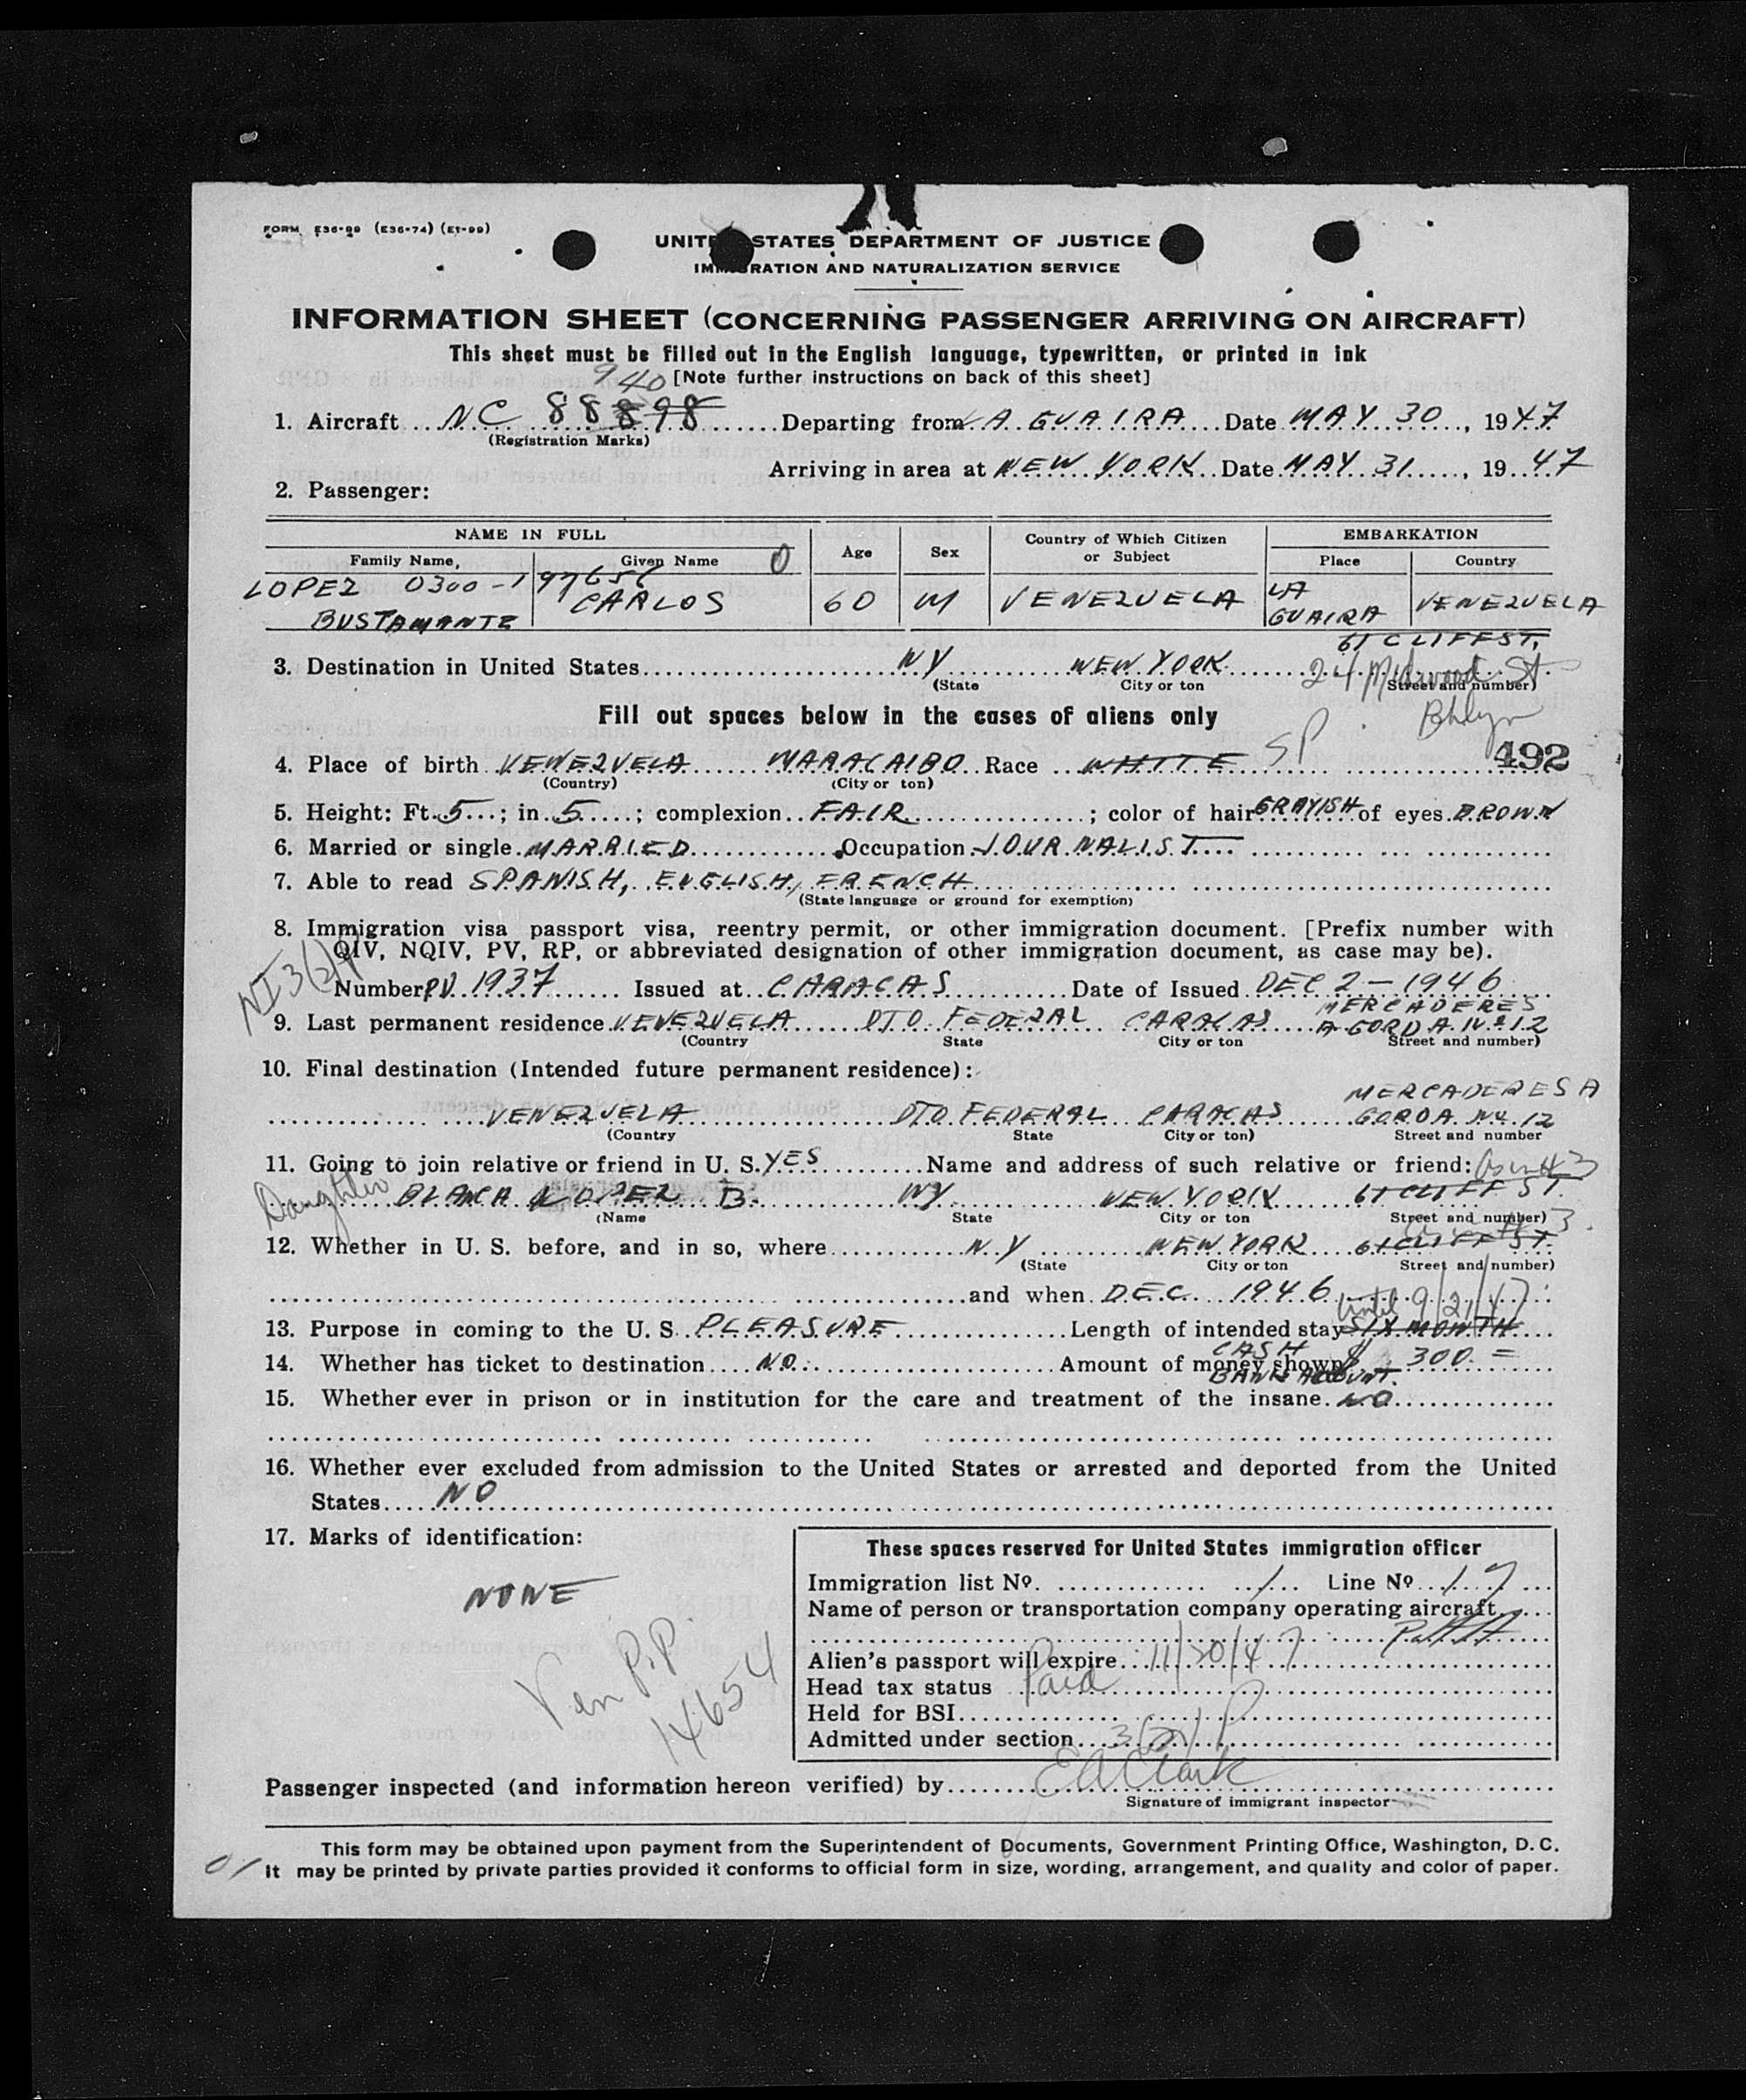 FORM E36-99 (E36-74) (E1-99)
UNITED STATES DEPARTMENT OF JUSTICE
IMMIGRATION AND NATURALIZATION SERVICE
INFORMATION SHEET (CONCERNING PASSENGER ARRIVING ON AIRCRAFT)
This sheet must be filled out in the English language, typewritten, or printed in ink
940 [Note further instructions on back of this sheet]
1. Aircraft NC 88898 Departing from LA GUAIRA Date MAY 30, 1947
(Registration Marks)
Arriving in area at NEW YORK Date MAY 31, 1947
2. Passenger:
NAME IN FULL Age Sex Country of Which Citizen or Subject EMBARKATION
Family Name, Given Name Place Country
LOPEZ 0300-197656
BUSTAMANTE CARLOS 60 M VENEZUELA LA GUAIRA VENEZUELA
61 CLIFF ST.
3. Destination in United States NY NEW YORK 24 Midwood St
(State City or ton Street and number)
Bklyn
Fill out spaces below in the cases of aliens only
492
4. Place of birth VENEZUELA MARACAIBO Race WHITE SP
(Country) (City or ton)
5. Height: Ft. 5; in. 5; complexion FAIR; color of hair GRAYISH of eyes BROWN
6. Married or single MARRIED Occupation JOURNALIST
7. Able to read SPANISH, ENGLISH, FRENCH
(State language or ground for exemption)
8. Immigration visa passport visa, reentry permit, or other immigration document. [Prefix number with
QIV, NQIV, PV, RP, or abbreviated designation of other immigration document, as case may be).
NI 3(2)
Number PV 1937 Issued at CARACAS Date of Issued DEC 2-1946
MERCADERES
9. Last permanent residence VENEZUELA DTO FEDERAL CARACAS A GORDA Nº 12
(Country State City or ton Street and number)
10. Final destination (Intended future permanent residence):
MERCADERES A
VENEZUELA DTO FEDERAL CARACAS GORDA Nº 12
(Country State City or ton) Street and number
11. Going to join relative or friend in U. S. YES Name and address of such relative or friend:
Daughter BLANCA LOPEZ B. NY NEW YORK 61 CLIFF ST.
(Name State City or ton Street and number)
12. Whether in U. S. before, and in so, where N.Y NEW YORK 61 CLIFF ST.
(State City or ton Street and number)
and when DEC. 1946
Until 9/21/47
13. Purpose in coming to the U. S. PLEASURE Length of intended stay SIX MONTH
14. Whether has ticket to destination NO. Amount of money shown CASH $ 300 =
BANK ACCOUNT.
15. Whether ever in prison or in institution for the care and treatment of the insane. NO
16. Whether ever excluded from admission to the United States or arrested and deported from the United
States NO
17. Marks of identification:
NONE
Ven P.P.
14654
These spaces reserved for United States immigration officer
Immigration list Nº. 1 Line Nº 17
Name of person or transportation company operating aircraft
Alien's passport will expire 11/20/47
Head tax status Paid
Held for BSI
Admitted under section 3(2)
Passenger inspected (and information hereon verified) by EA Clark
Signature of immigrant inspector
This form may be obtained upon payment from the Superintendent of Documents, Government Printing Office, Washington, D. C.
01 It may be printed by private parties provided it conforms to official form in size, wording, arrangement, and quality and color of paper.